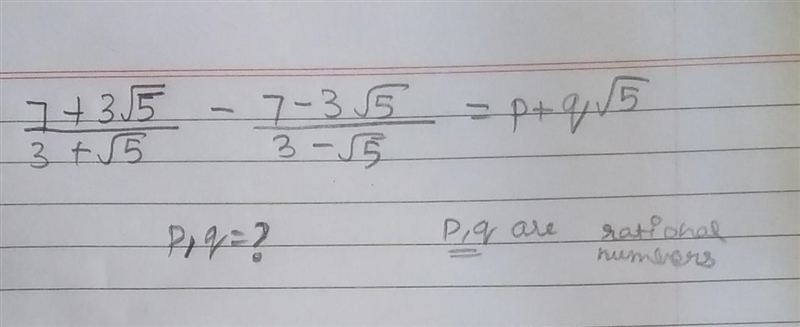 7 + 3√5 / 3 + √5 - 7 - 3√5 / 3 - √5 = p + q√5
p, q = ? p, q are rational
numbers